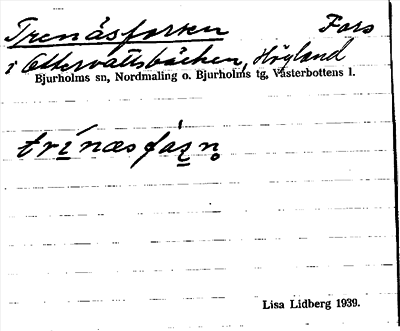 Trenäsforsen Fors
i Ottervattsbäcken, Högland
Bjurholms sn, Nordmaling o. Bjurholms tg, Västerbottens l.
trínæsfásn̥
Lisa Lidberg 1939.